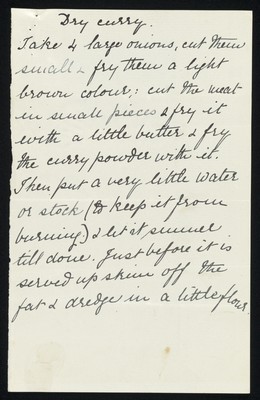 Dry curry.
Take 4 large onions, cut them
small & fry them a light
brown colour; cut the meat
in small pieces & fry it
with a little butter & fry
the curry powder with it.
Then put a very little water
or stock (to keep it from
burning) & let it simmer
till done. Just before it is
served up skim off the
fat & dredge in a little flour.